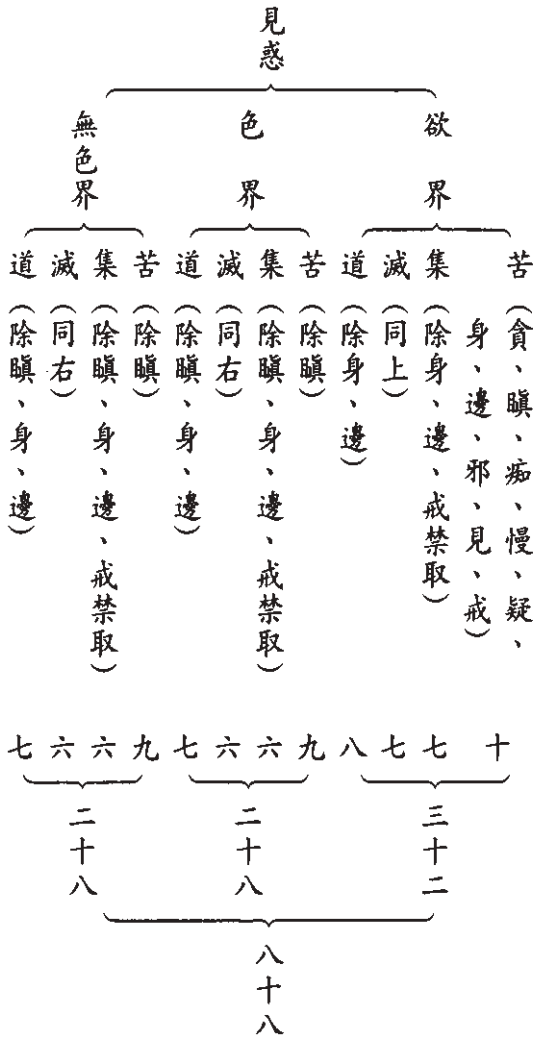 見惑
欲界
苦（貪、瞋、痴、慢、疑、
身、邊、邪、見、戒）
十
集（除身、邊、戒禁取）
七
滅（同上）
七
道（除身、邊）
八
三十二
色界
苦（除瞋）
九
集（除瞋、身、邊、戒禁取）
六
滅（同右）
六
道（除瞋、身、邊）
七
二十八
無色界
苦（除瞋）
九
集（除瞋、身、邊、戒禁取）
六
滅（同右）
六
道（除瞋、身、邊）
七
二十八
八十八